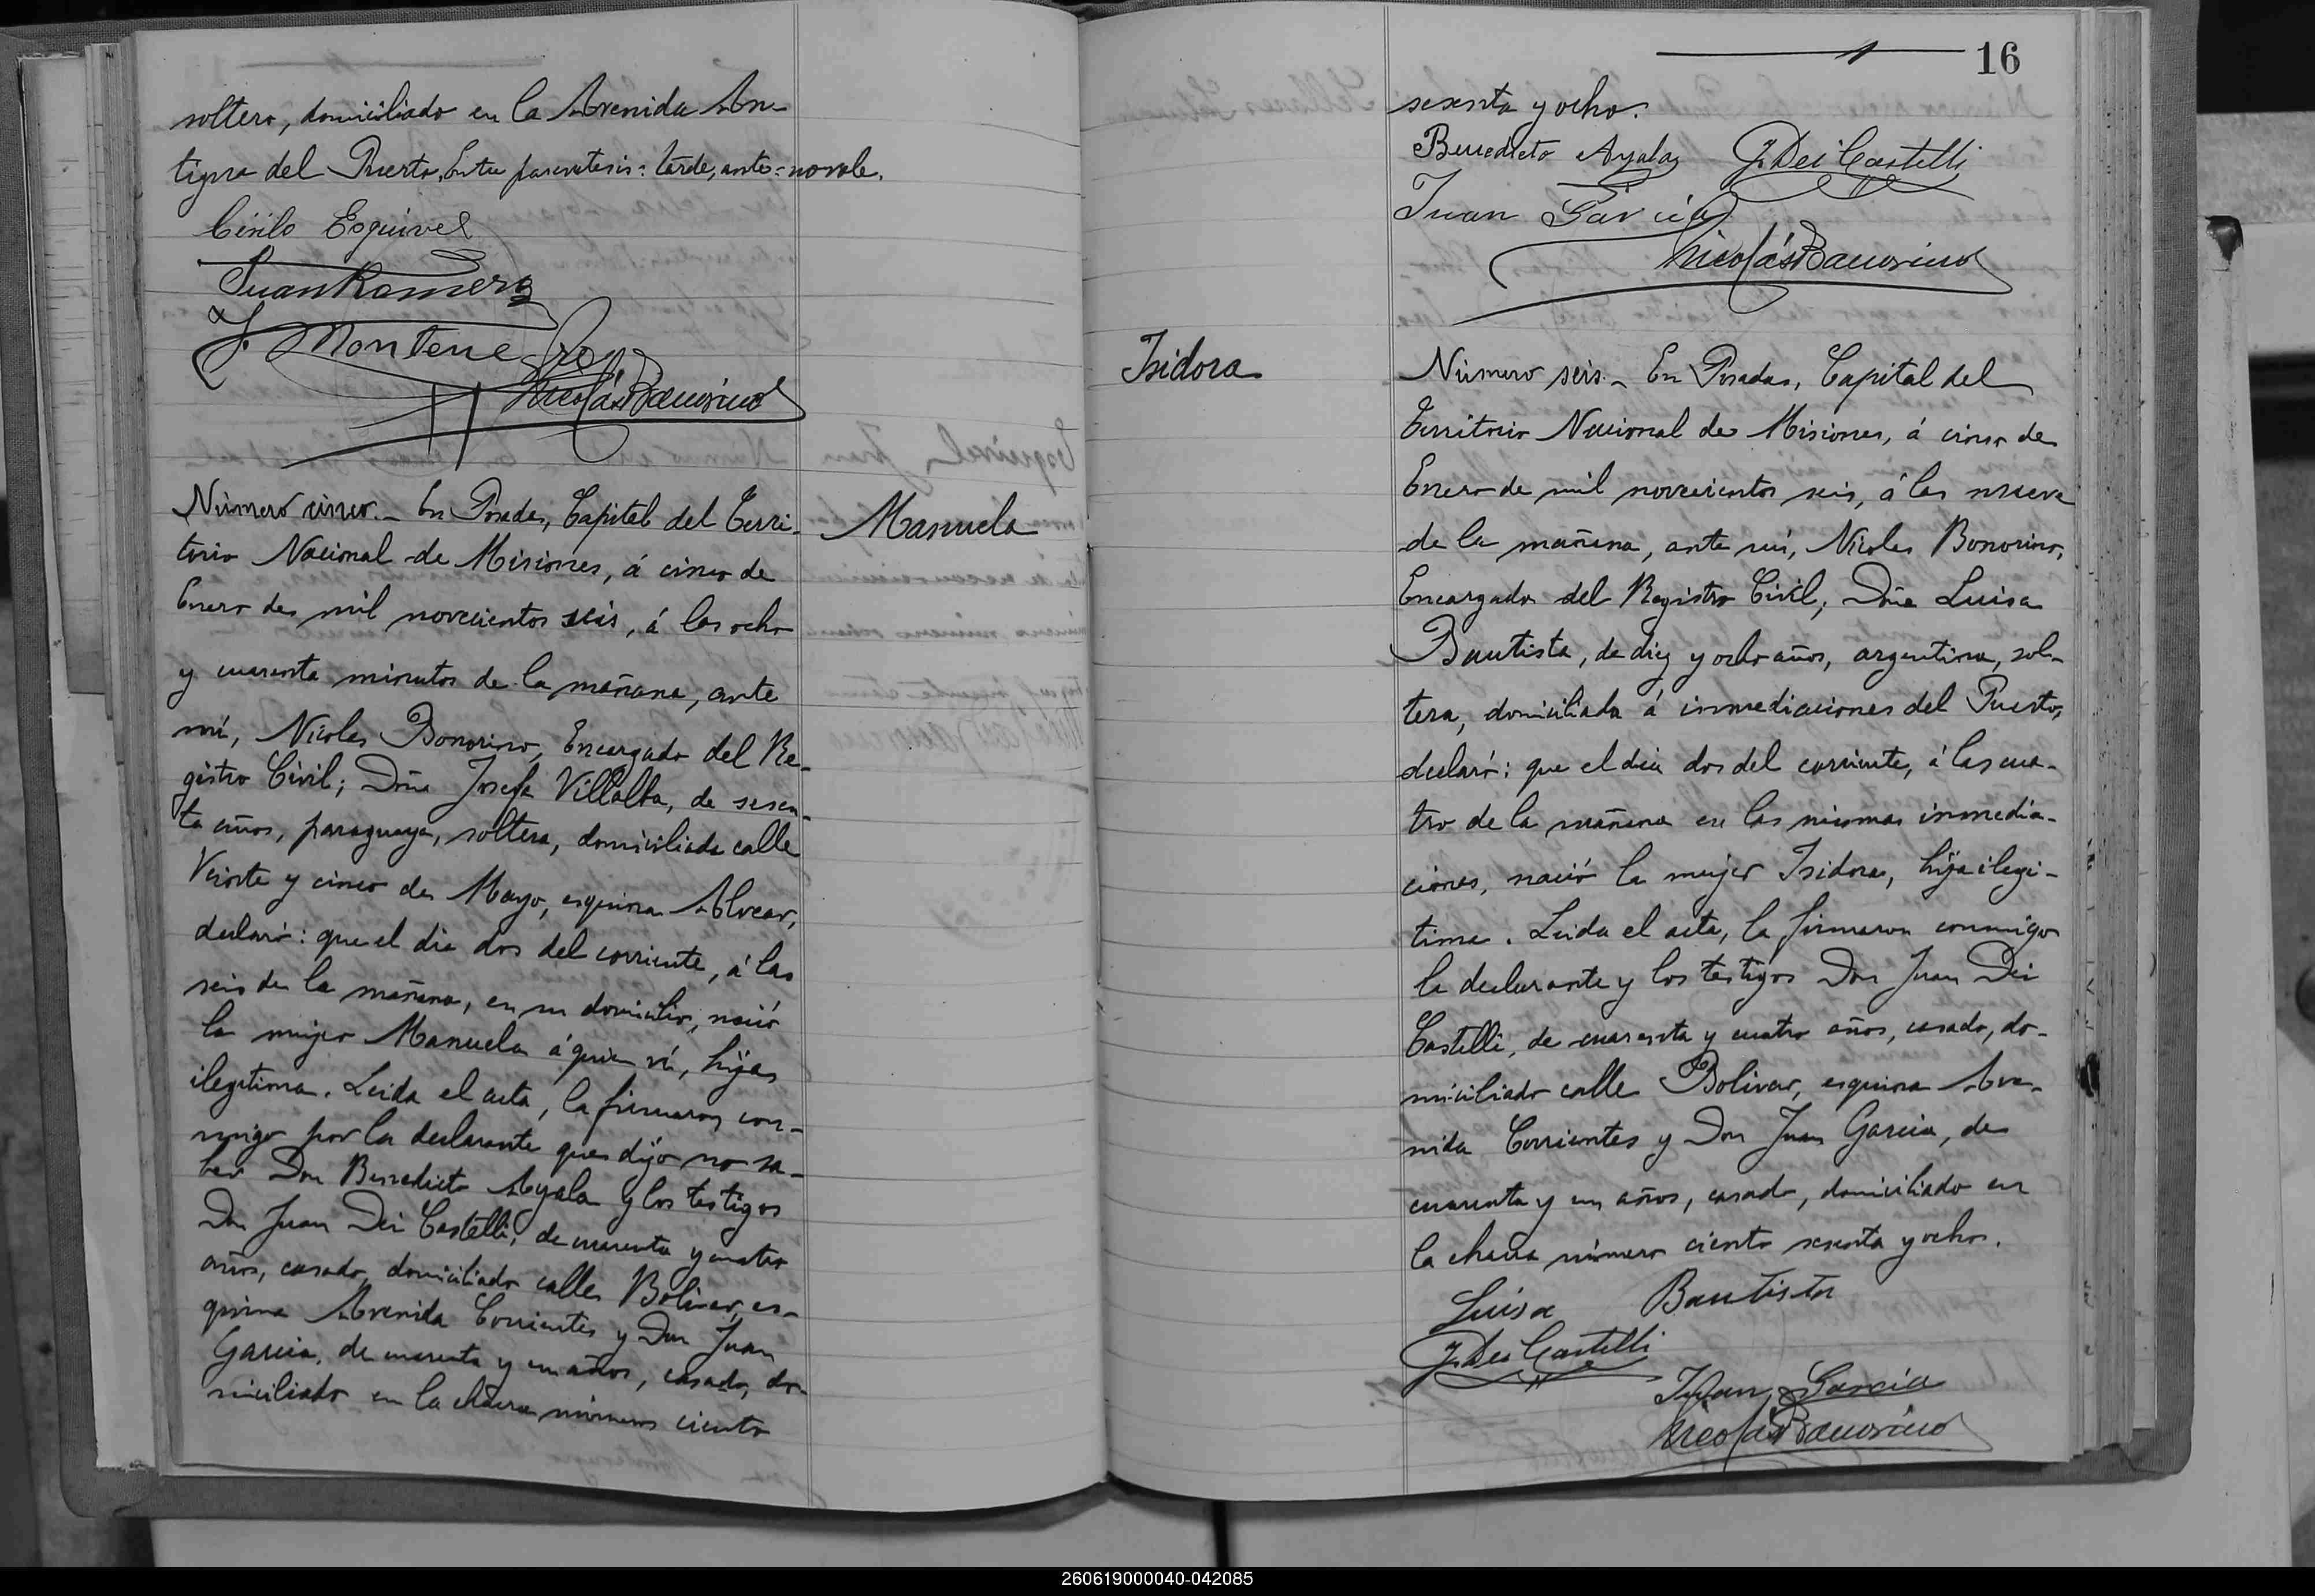 soltero, domiciliado en la Avenida An-
tigua del Puerto. Entre parentesis: tarde, ante = no vale.
Cirilo Esquivel
Juan Romero
J. Montenegro
Nicolás Bonorino
Número cinco.- En Posadas, Capital del Terri-
torio Nacional de Misiones, á cinco de
Enero de mil novecientos seis, á las ocho
y cuarenta minutos de la mañana, ante
mí, Nicolas Bonorino, Encargado del Re-
gistro Civil; Doña Josefa Villalba, de sesen-
ta años, paraguaya, soltera, domiciliada calle
Veinte y cinco de Mayo, esquina Alvear,
declaró: que el dia dos del corriente, á las
seis de la mañana, en su domicilio, nació
la mujer Manuela á quien ví, hija
ilegitima. Leida el acta, la firmaron con-
migo por la declarante que dijo no sa-
ber Don Benedicto Ayala y los testigos
Don Juan Dei Castelli, de cuarenta y cuatro
años, casado, domiciliado calle Bolivar, es-
quina Avenida Corrientes y Don Juan
Garcia, de cuarenta y un años, casado, do-
miciliado en la chacra número ciento
Manuela
16
sesenta y ocho.
Benedicto Ayala J. Dei Castelli
Juan Garcia
Nicolás Bonorino
Isidora
Número seis.- En Posadas, Capital del
Territorio Nacional de Misiones, á cinco de
Enero de mil novecientos seis, á las nueve
de la mañana, ante mí, Nicolas Bonorino,
Encargado del Registro Civil; Doña Luisa
Bautista, de diez y ocho años, argentina, sol-
tera, domiciliada á inmediaciones del Puerto,
declaró: que el dia dos del corriente, á las cua-
tro de la mañana en las mismas inmedia-
ciones, nació la mujer Isidora, hija ilegi-
tima. Leida el acta, la firmaron conmigo
la declarante y los testigos Don Juan Dei
Castelli, de cuarenta y cuatro años, casado, do-
miciliado calle Bolivar, esquina Ave-
nida Corrientes y Don Juan Garcia, de
cuarenta y un años, casado, domiciliado en
la chacra número ciento sesenta y ocho.
Luisa Bautista
J. Dei Castelli
Juan Garcia
Nicolás Bonorino
260619000040-042085